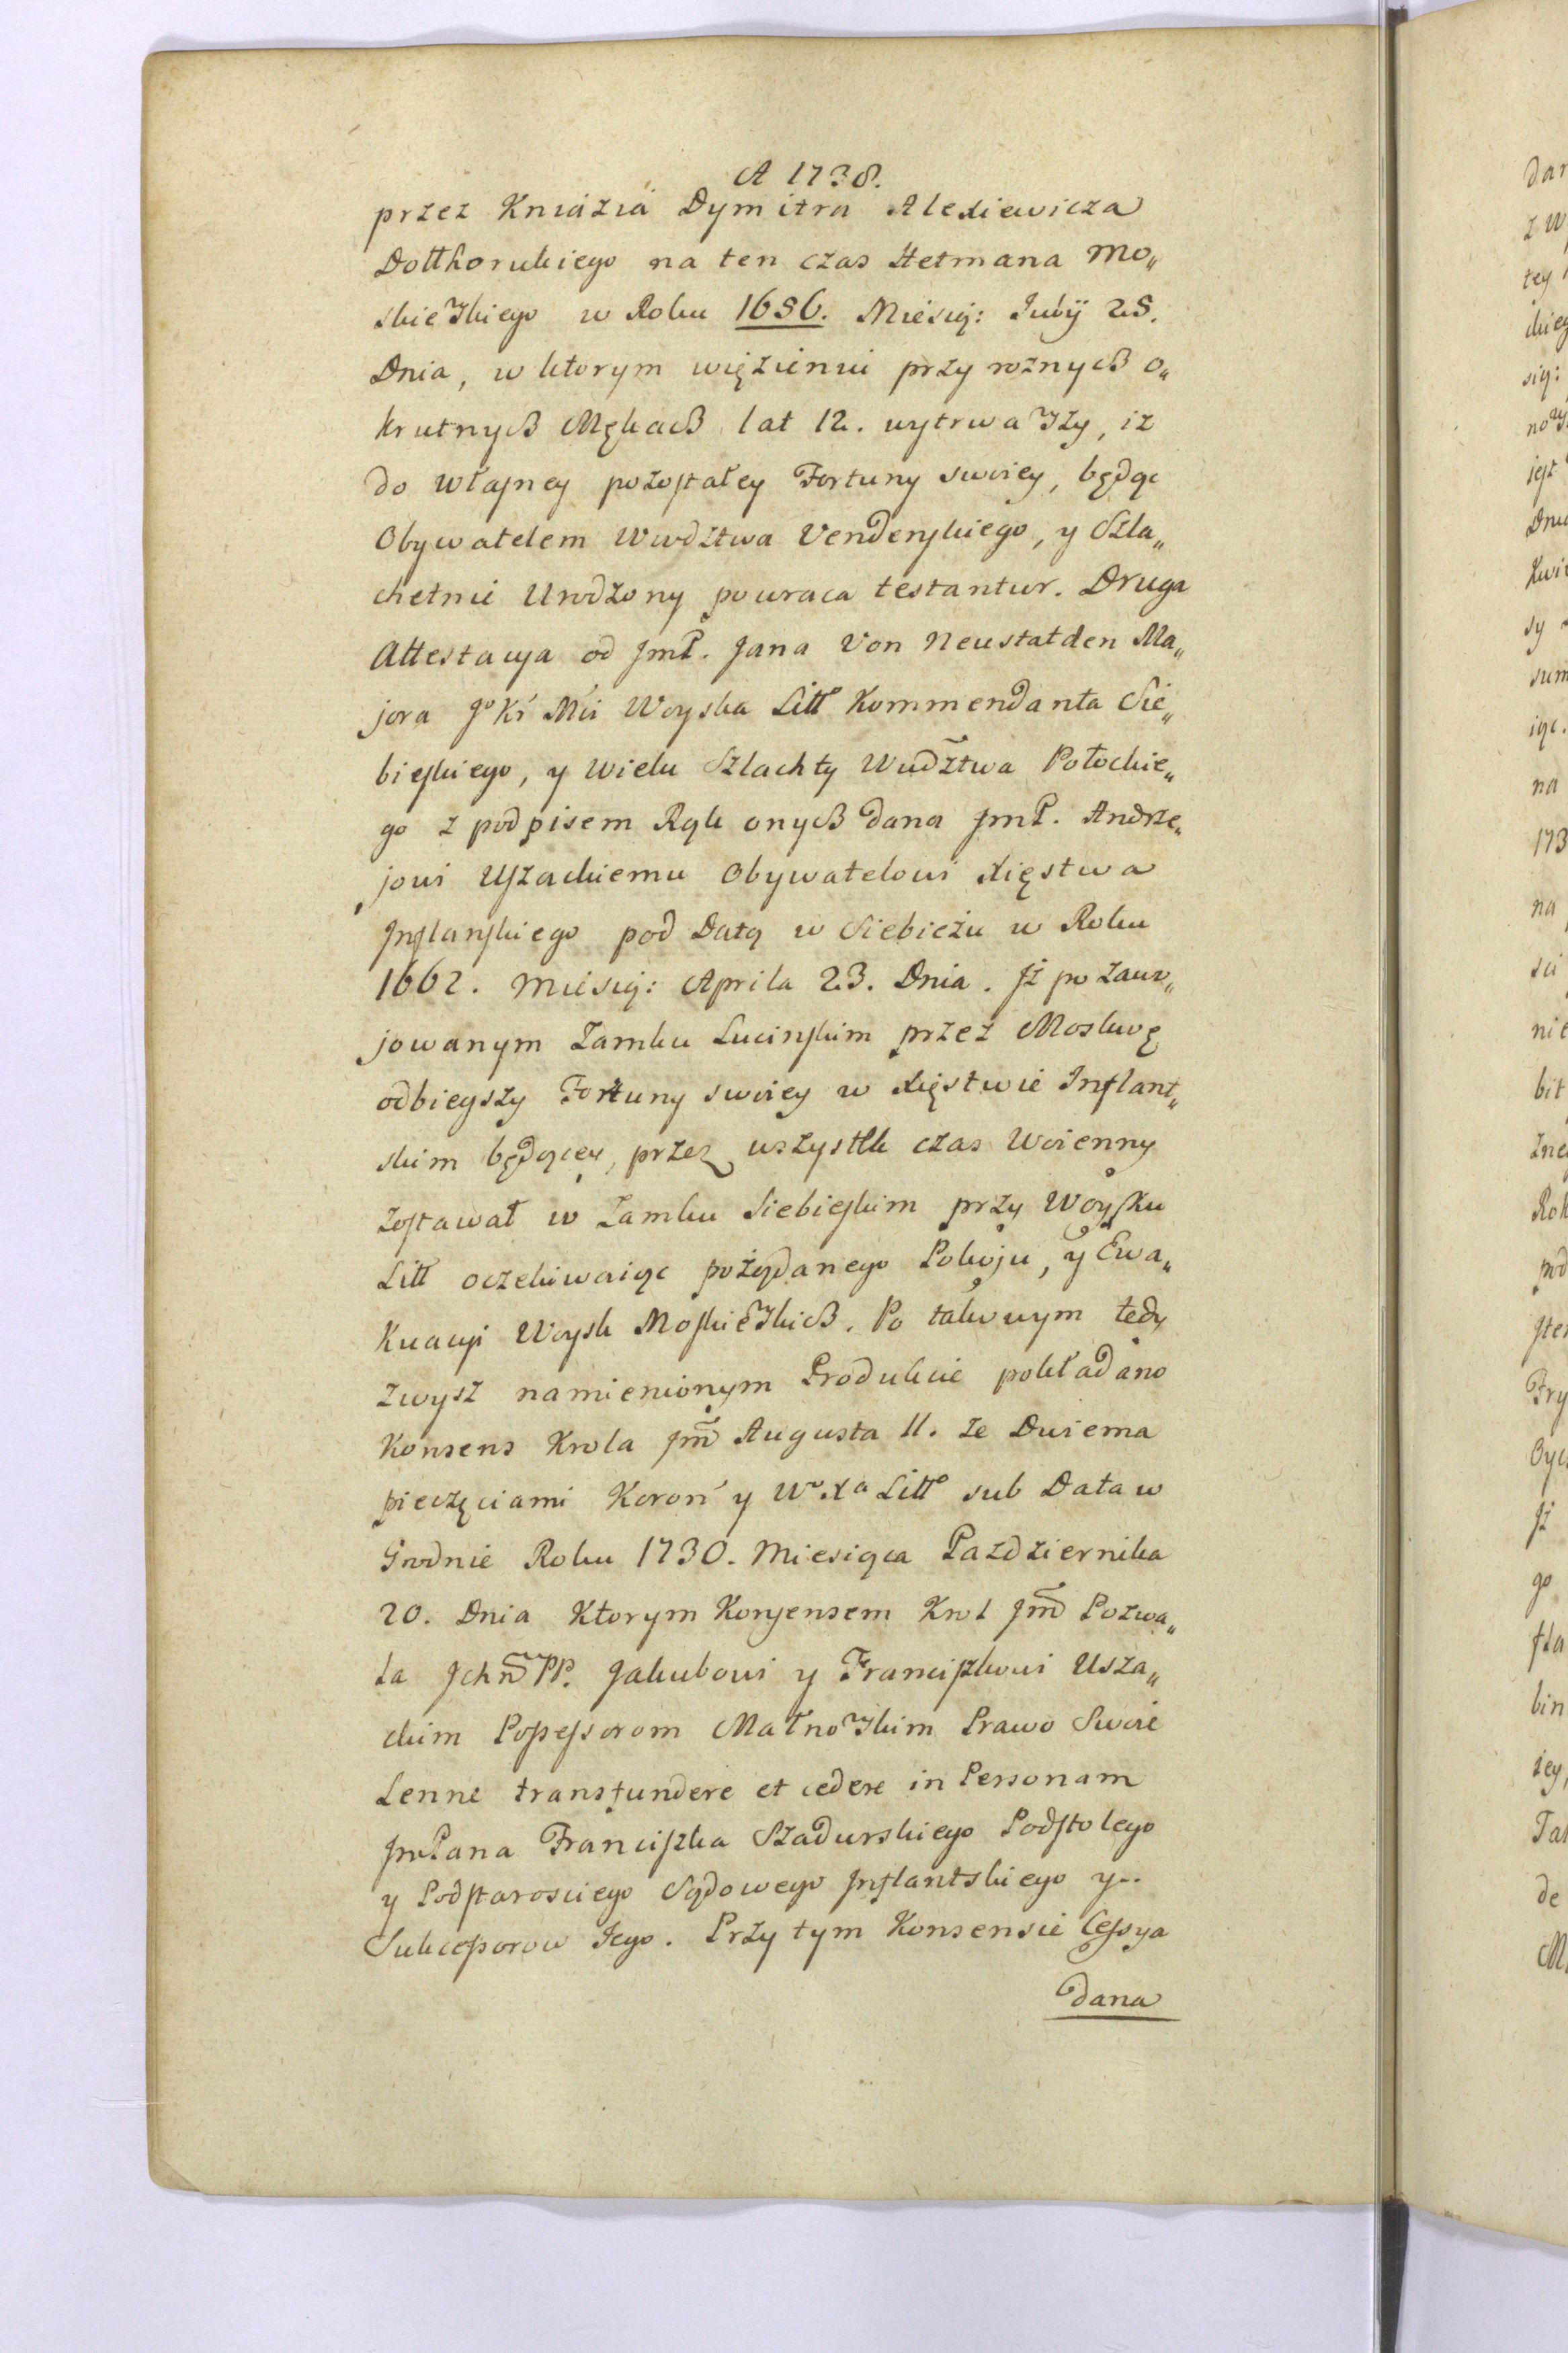 A 1738.
przez Kniazia Dymitra Alexiewicza
Dołłhorukiego na ten czas Hetmana Mo„
skiewskiego w Roku 1656. Miesią: Julij 25.
Dnia, w ktorym więzieniu przy roznych o„
krutnych Mękach lat 12. wytrwawszy, iz
do własney pozostałey Fortuny swoiey, będąc
Obywatelem Wwdztwa Vendenskiego, y Szla„
chetnie Urodzony powraca testantur. Druga
Attestacya od JmP. Jana Von Neustatden Ma„
jora Jo Kr Mći Woyska Litt° Kommendanta Sie„
bieskiego, y wielu Szlachty Wwdztwa Połockie„
go z podpisem Rąk onych dana JmP. Andrze„
jowi Uszackiemu Obywatelowi Xięstwa
Inflanskiego pod Datą w Siebieżu w Roku
1662. Miesią: Aprila 23. Dnia. Iż po zawo„
jowanym Zamku Lucinskim przez Moskwę
odbiegszy Fortuny swoiey w Xięstwie Inflant„
skim będącey, przez wszystek czas Woienny
zostawał w Zamku Siebieskim przy Woysku
Litt oczekiwaiąc pożądanego Pokoju, y Ewa„
kuacyi Woysk Moskiewskich. Po takowym tedy
zwysz namienionym Produkcie pokładano
Konsens Krola Jm̃ Augusta II. ze Dwiema
pieczęciami Koroń y Wo Xa Litt° sub Data w
Grodnie Roku 1730. Miesiąca Pazdziernika
20. Dnia Ktorym Konsensem Krol Jm̃ Pozwa„
la Jchm̃ PP. Jakubowi y Franciszkowi Usza„
ckim Possessorom Małnowskim Prawo Swoie
Lenne transfundere et cedere in Personam
JmPana Franciszka Szadurskiego Podstolego
y Podstarosciego Sądowego Inflantskiego y..
Sukcessorow Jego. Przy tym Konsensie Cessya
dana